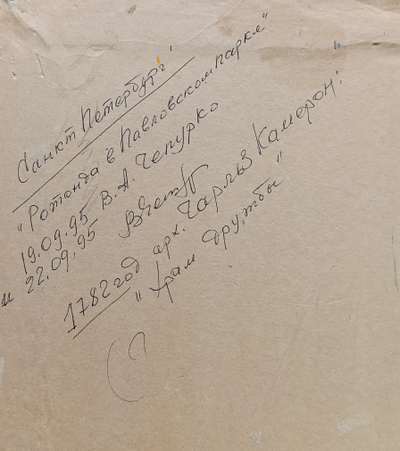 Санкт Петербург
"Ротонда в Павловском парке"
19.09.95 В. А. Чепурко
и 22.09.95
1782 год арх. Чарльз Камерон:
"Храм дружбы"
(?